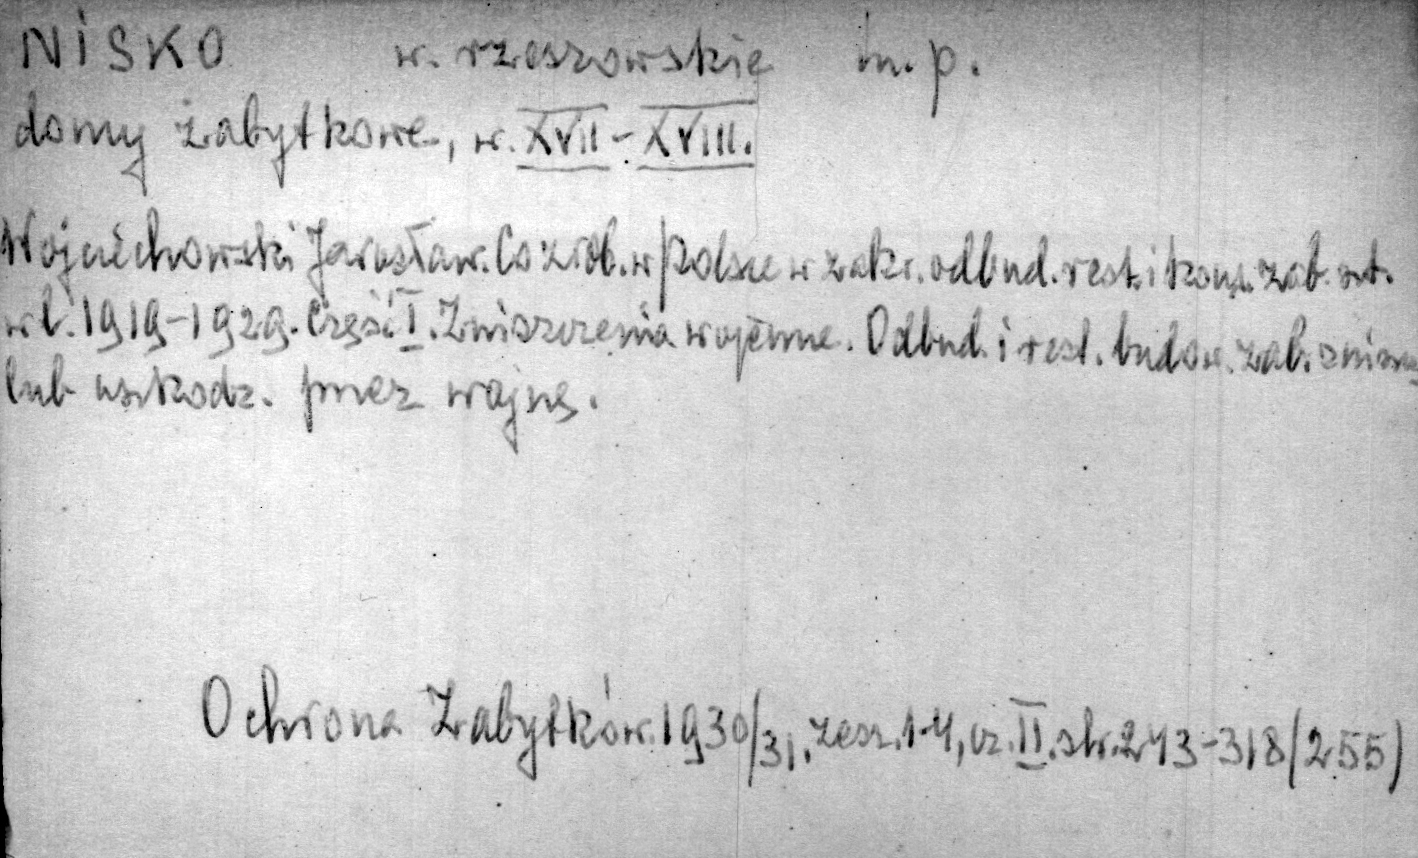 NISKO w. rzeszowskie m. p.
domy zabytkowe, w. XVII - XVIII.
Wojciechowski Jarosław. Co zrob. w Polsce w zakr. odbud. rest. i kons. zab. szt.
w l. 1919-1929. Część I. Zniszczenia wojenne. Odbud. i rest. budow. zab. zniszcz
lub uszkodz. przez wojnę.
Ochrona Zabytków. 1930/31, zesz. 1-4, cz. II. str. 243-318 (255)